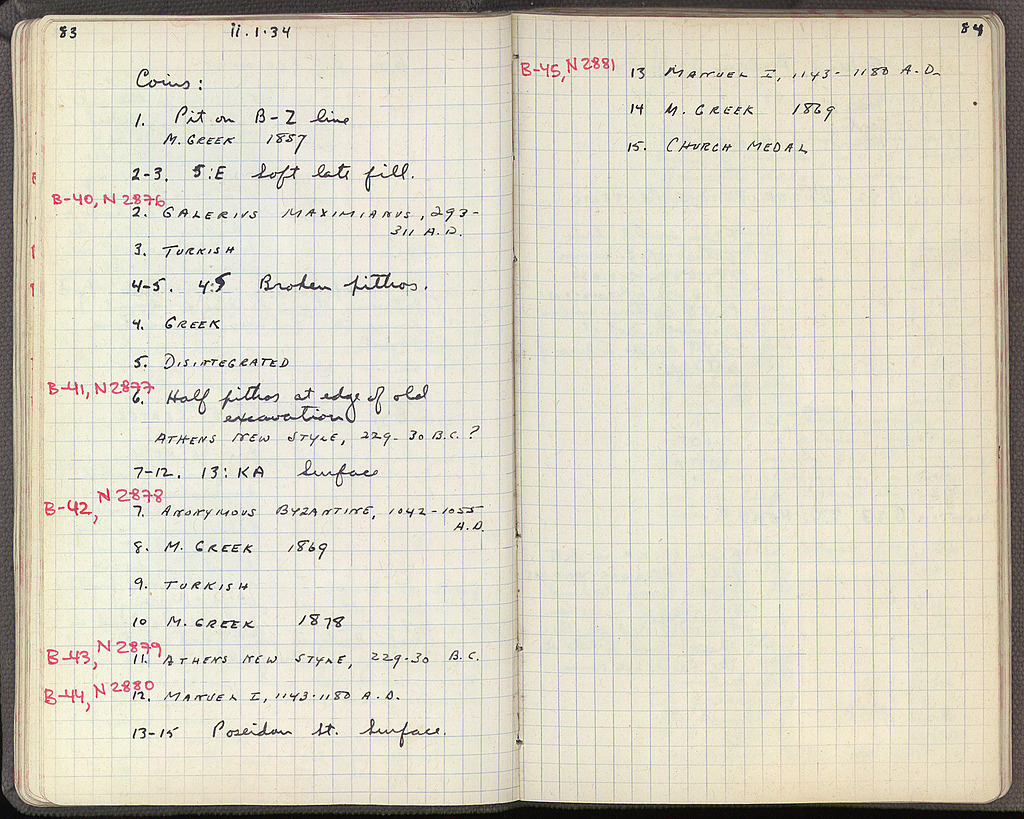 83
ii.1.34
Coins:
1. Pit on B-Z line
M. GREEK 1857
2-3. 5:E Soft late fill.
B-40, N 2876
2. GALERIUS MAXIMIANUS, 293-
311 A.D.
3. TURKISH
4-5. 4:5 Broken pithos.
4. GREEK
5. DISINTEGRATED
B-41, N 2877
6. Half pithos at edge of old
excavation
ATHENS NEW STYLE, 229-30 B.C.?
7-12. 13:KA Surface
B-42, N 2878
7. ANONYMOUS BYZANTINE, 1042-1055
A.D.
8. M. GREEK 1869
9. TURKISH
10 M. GREEK 1878
B-43, N 2879
11. ATHENS NEW STYLE, 229-30 B.C.
B-44, N 2880
12. MANUEL I, 1143-1180 A.D.
13-15 Poseidon St. Surface.
84
B-45, N 2881
13 MANUEL I, 1143-1180 A.D.
14 M. GREEK 1869
15. CHURCH MEDAL